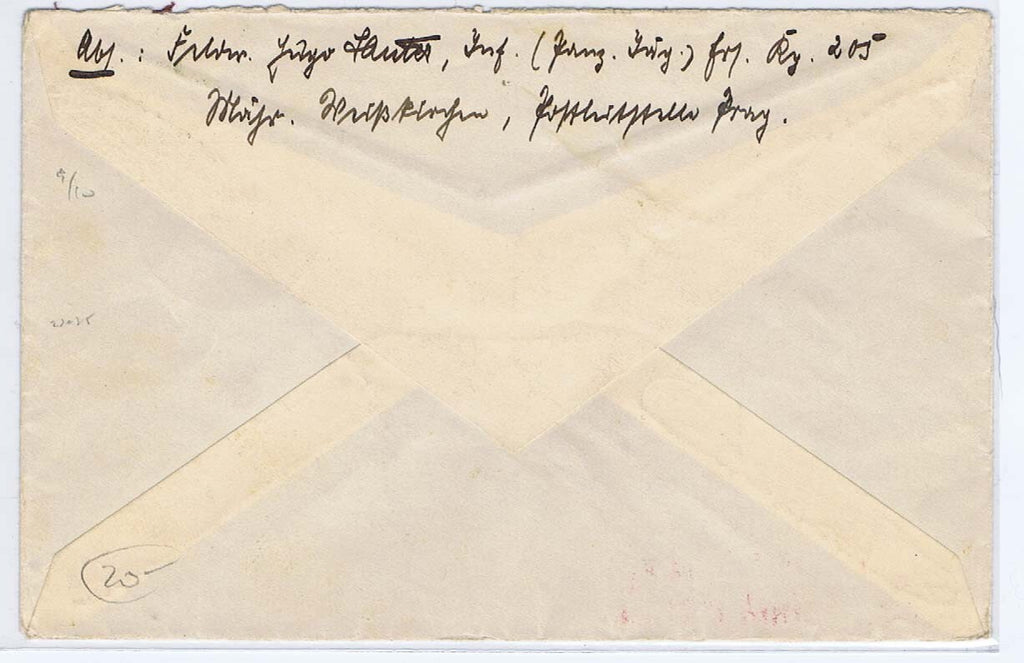 Abs.: Feldw. Hugo, Inf. (Panz. Jäg.) Ers. Kp. 205
Mähr. Weißkirchen, Postleitstelle Prag.
9/10
20-